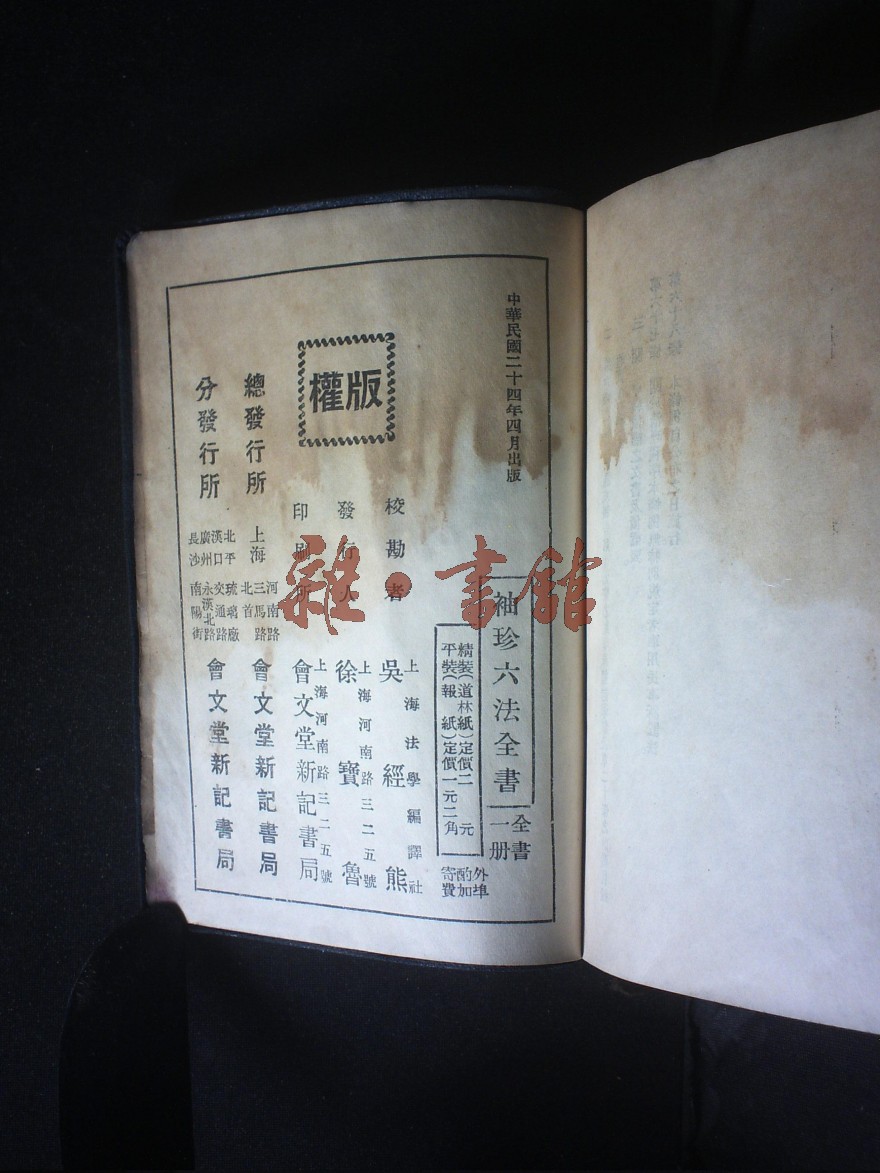 中華民國二十四年四月出版
袖珍六法全書
全書一册
精裝(道林紙)定價二元
平裝(報紙)定價一元二角
外埠酌加寄費
版權
校勘者
上海法學編譯社
吳經熊
發行人
上海河南路三二五號
徐寶魯
印刷所
上海河南路三二五號
會文堂新記書局
總發行所
上海
河南路
三馬路
北首
會文堂新記書局
分發行所
北平 琉璃廠
漢口 交通路
廣州 永漢北路
長沙 南陽街
會文堂新記書局
雜·書館